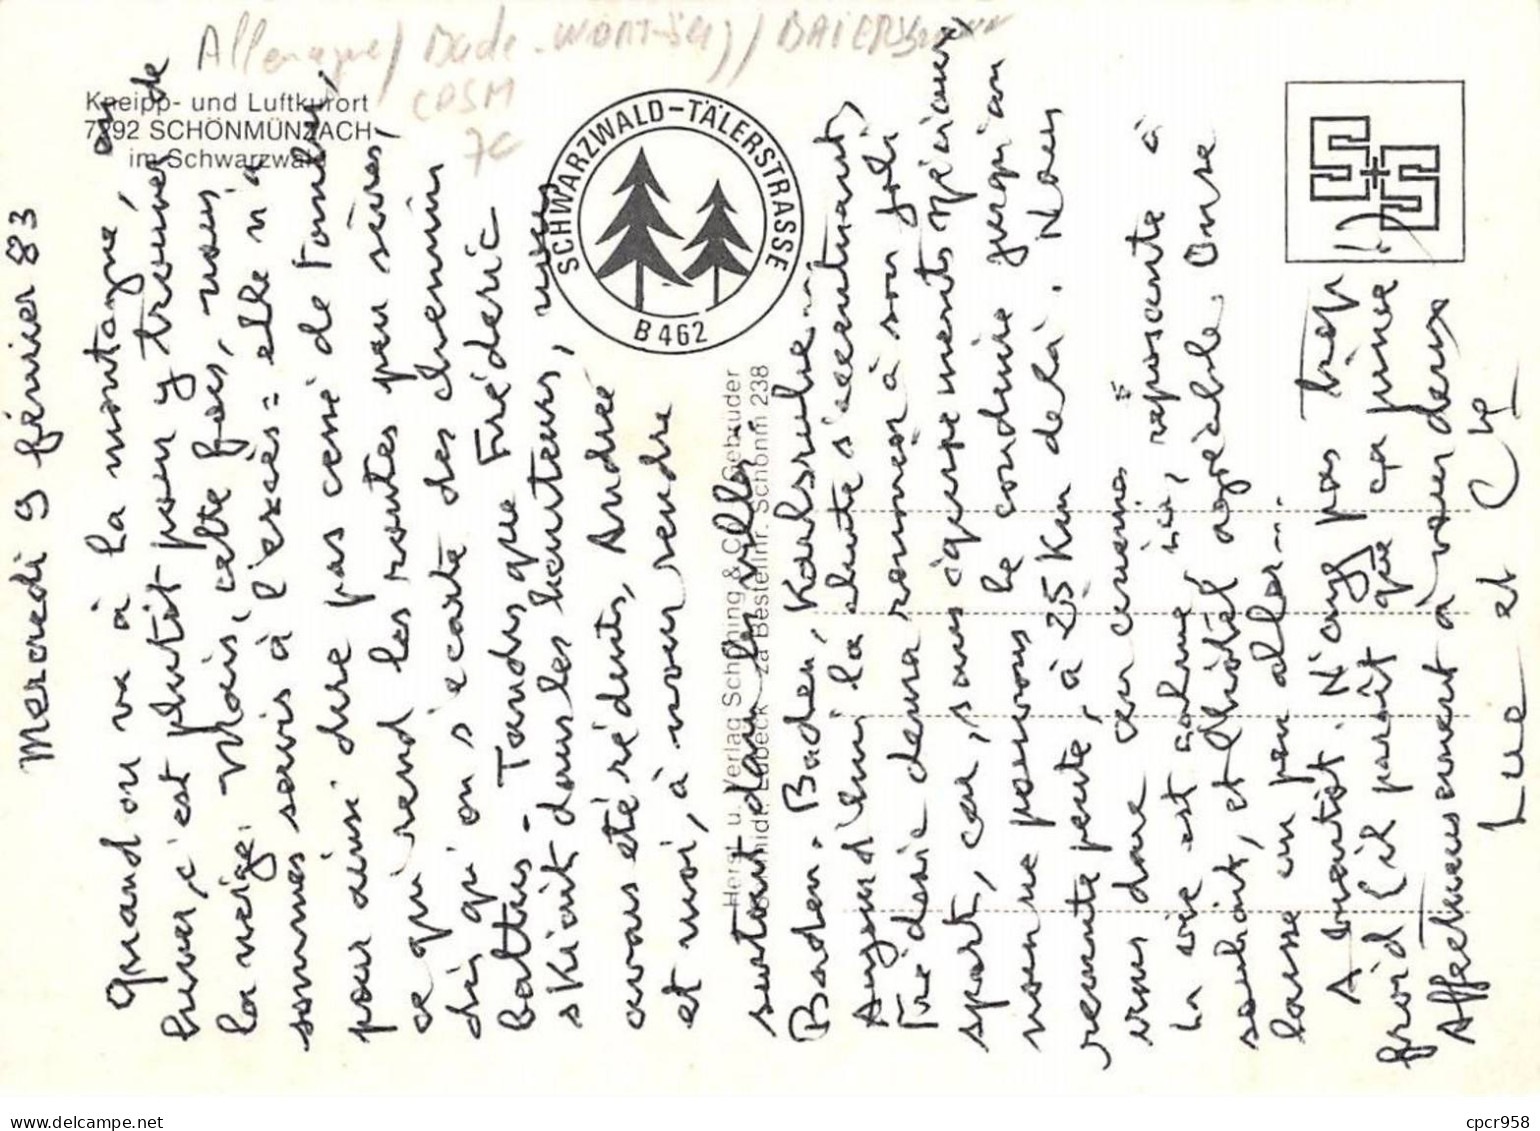 Allemagne / Bade-
COSM
7€
Kneipp- und Luftkurort
7292 SCHÖNMÜNZACH
im Schwarzwald
SCHWARZWALD-TÄLERSTRASSE
B 462
Horst u. Verlag Schöning & Co Gebrüder
Schmidt, Lübeck za Bestellnr. Schönm 238
Mercredi 9 février 83
Quand on va à la montagne, en
hiver, c'est plutôt pour y trouver de
la neige. Mais, cette fois, nous
sommes servis à l'excès = elle n'a
pour ainsi dire pas cessé de tomber,
ce qui rend les routes peu sûres,
dès qu'on s'écarte des chemins
battus - Tandis que Frédéric
skiait dans les hauteurs, nous
avons été réduits, Andrée
et moi, à nous rendre
surtout dans les villes :
Baden-Baden, Karlsruhe...
Aujourd'hui la chute s'accentuant,
Frédéric devra renoncer à son joli
sport, car, sans équipements spéciaux
nous ne pouvons le conduire jusqu'au
remonte-pente, à 25 Km de là. Nous
irons donc au cinéma
la vie est calme ici, reposante à
souhait, et l'hôtel agréable. On se
laisse un peu aller...
A bientôt. N'ayez pas trop
froid (il paraît que ça pince !)
Affectueusement à vous deux
Luc et
cpcr958